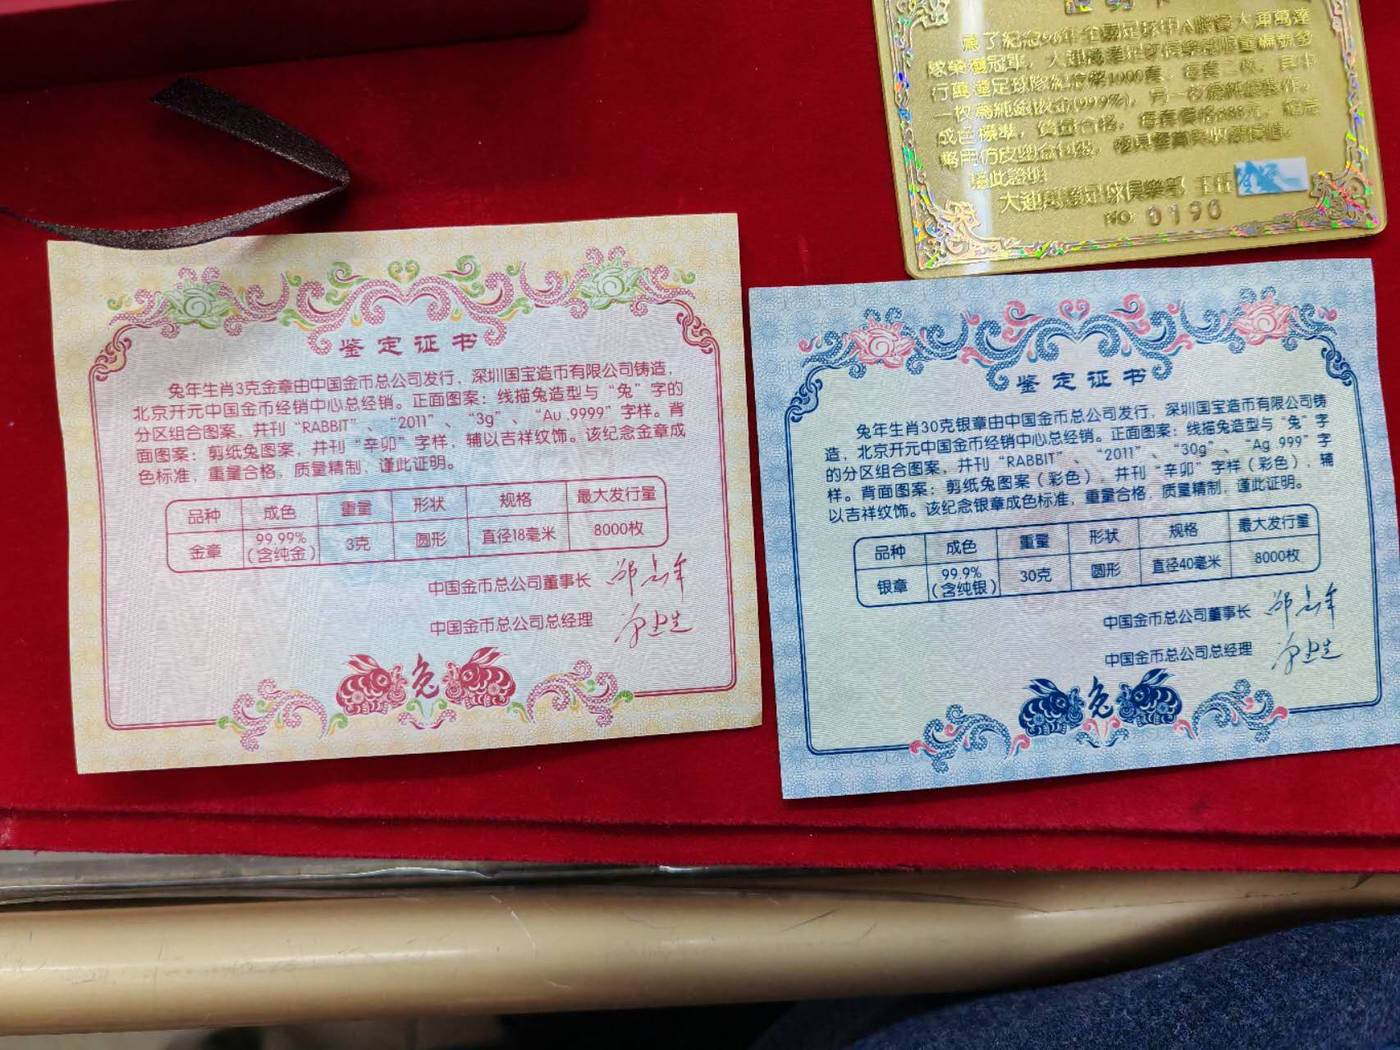 為了紀念96年全國足球甲A聯賽大連萬達
隊榮獲冠軍，大連萬達足球俱樂部限量編號發
行萬達足球隊紀念幣1000套，每套二枚，其中
一枚為純銀鍍金(99.9%)，另一枚
成色標準，質量合格，每套價格688元，
謹此證明
大連萬達足球俱樂部 主任
NO: 0190
鉴定证书
兔年生肖3克金章由中国金币总公司发行，深圳国宝造币有限公司铸造，
北京开元中国金币经销中心总经销。正面图案：线描兔造型与“兔”字的
分区组合图案，并刊“RABBIT”、“2011”、“3g”、“Au .9999”字样。背
面图案：剪纸兔图案，并刊“辛卯”字样，辅以吉祥纹饰。该纪念金章成
色标准，重量合格，质量精制，谨此证明。
品种 成色 重量 形状 规格 最大发行量
金章 99.99%(含纯金) 3克 圆形 直径18毫米 8000枚
中国金币总公司董事长
中国金币总公司总经理
兔
鉴定证书
兔年生肖30克银章由中国金币总公司发行，深圳国宝造币有限公司铸
造，北京开元中国金币经销中心总经销。正面图案：线描兔造型与“兔”字
的分区组合图案，并刊“RABBIT”、“2011”、“30g”、“Ag .999”字
样。背面图案：剪纸兔图案（彩色），并刊“辛卯”字样（彩色），辅
以吉祥纹饰。该纪念银章成色标准，重量合格，质量精制，谨此证明。
品种 成色 重量 形状 规格 最大发行量
银章 99.9%(含纯银) 30克 圆形 直径40毫米 8000枚
中国金币总公司董事长
中国金币总公司总经理
兔